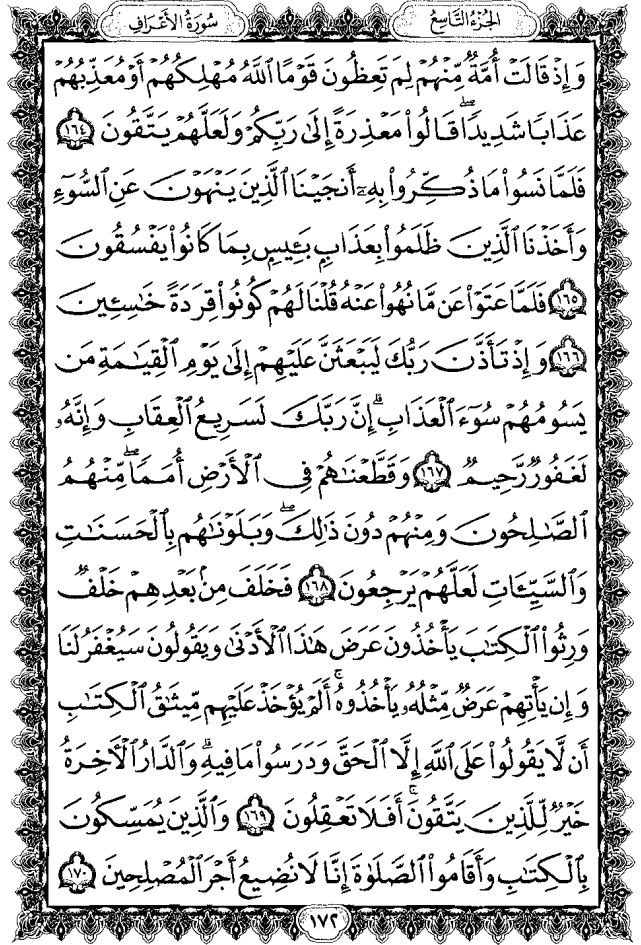 الجُزْءُ التَّاسِعُ
سُورَةُ الأَعْرَافِ
وَإِذْ قَالَتْ أُمَّةٌ مِّنْهُمْ لِمَ تَعِظُونَ قَوْمًا ٱللَّهُ مُهْلِكُهُمْ أَوْ مُعَذِّبُهُمْ
عَذَابًا شَدِيدًا ۖ قَالُوا۟ مَعْذِرَةً إِلَىٰ رَبِّكُمْ وَلَعَلَّهُمْ يَتَّقُونَ ١٦٤
فَلَمَّا نَسُوا۟ مَا ذُكِّرُوا۟ بِهِۦٓ أَنجَيْنَا ٱلَّذِينَ يَنْهَوْنَ عَنِ ٱلسُّوٓءِ
وَأَخَذْنَا ٱلَّذِينَ ظَلَمُوا۟ بِعَذَابٍۭ بَـِٔيسٍۭ بِمَا كَانُوا۟ يَفْسُقُونَ
١٦٥ فَلَمَّا عَتَوْا۟ عَن مَّا نُهُوا۟ عَنْهُ قُلْنَا لَهُمْ كُونُوا۟ قِرَدَةً خَـٰسِـِٔينَ
١٦٦ وَإِذْ تَأَذَّنَ رَبُّكَ لَيَبْعَثَنَّ عَلَيْهِمْ إِلَىٰ يَوْمِ ٱلْقِيَـٰمَةِ مَن
يَسُومُهُمْ سُوٓءَ ٱلْعَذَابِ ۗ إِنَّ رَبَّكَ لَسَرِيعُ ٱلْعِقَابِ ۖ وَإِنَّهُۥ
لَغَفُورٌ رَّحِيمٌ ١٦٧ وَقَطَّعْنَـٰهُمْ فِى ٱلْأَرْضِ أُمَمًا ۖ مِّنْهُمُ
ٱلصَّـٰلِحُونَ وَمِنْهُمْ دُونَ ذَٰلِكَ ۖ وَبَلَوْنَـٰهُم بِٱلْحَسَنَـٰتِ
وَٱلسَّيِّـَٔاتِ لَعَلَّهُمْ يَرْجِعُونَ ١٦٨ فَخَلَفَ مِنۢ بَعْدِهِمْ خَلْفٌ
وَرِثُوا۟ ٱلْكِتَـٰبَ يَأْخُذُونَ عَرَضَ هَـٰذَا ٱلْأَدْنَىٰ وَيَقُولُونَ سَيُغْفَرُ لَنَا
وَإِن يَأْتِهِمْ عَرَضٌ مِّثْلُهُۥ يَأْخُذُوهُ ۚ أَلَمْ يُؤْخَذْ عَلَيْهِم مِّيثَـٰقُ ٱلْكِتَـٰبِ
أَن لَّا يَقُولُوا۟ عَلَى ٱللَّهِ إِلَّا ٱلْحَقَّ وَدَرَسُوا۟ مَا فِيهِ ۗ وَٱلدَّارُ ٱلْـَٔاخِرَةُ
خَيْرٌ لِّلَّذِينَ يَتَّقُونَ ۗ أَفَلَا تَعْقِلُونَ ١٦٩ وَٱلَّذِينَ يُمَسِّكُونَ
بِٱلْكِتَـٰبِ وَأَقَامُوا۟ ٱلصَّلَوٰةَ إِنَّا لَا نُضِيعُ أَجْرَ ٱلْمُصْلِحِينَ ١٧٠
١٧٢